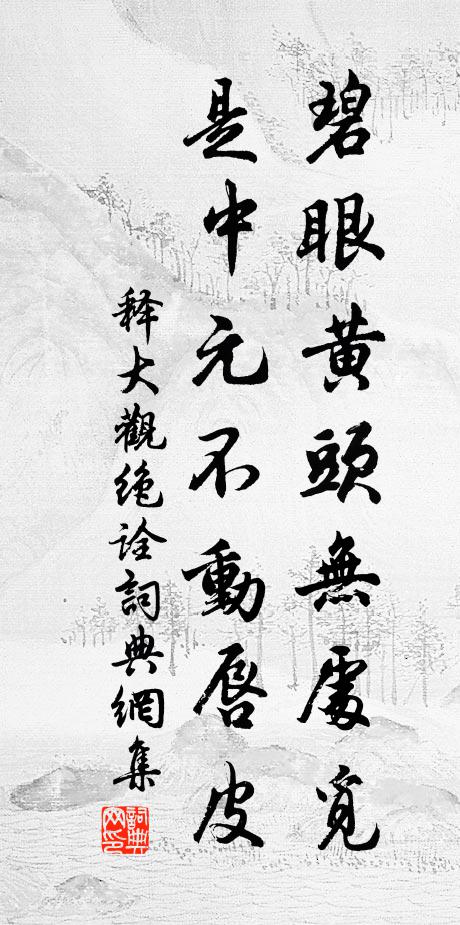 碧眼黄頭無處覓
是中元不動唇皮
释大觀绝诠詞典網集
詞典網印